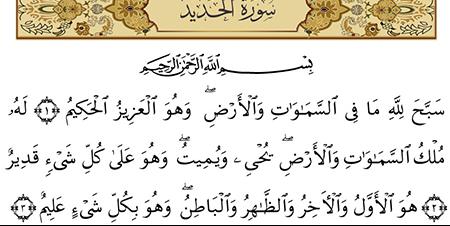 سورة الحديد
بِسْمِ اللَّهِ الرَّحْمَٰنِ الرَّحِيمِ
سَبَّحَ لِلَّهِ مَا فِى السَّمَـٰوَٰتِ وَالْأَرْضِ ۖ وَهُوَ الْعَزِيزُ الْحَكِيمُ ﴿١﴾ لَهُۥ
مُلْكُ السَّمَـٰوَٰتِ وَالْأَرْضِ ۖ يُحْىِۦ وَيُمِيتُ ۖ وَهُوَ عَلَىٰ كُلِّ شَىْءٍ قَدِيرٌ
﴿٢﴾ هُوَ الْأَوَّلُ وَالْـَٔاخِرُ وَالظَّـٰهِرُ وَالْبَاطِنُ ۖ وَهُوَ بِكُلِّ شَىْءٍ عَلِيمٌ ﴿٣﴾